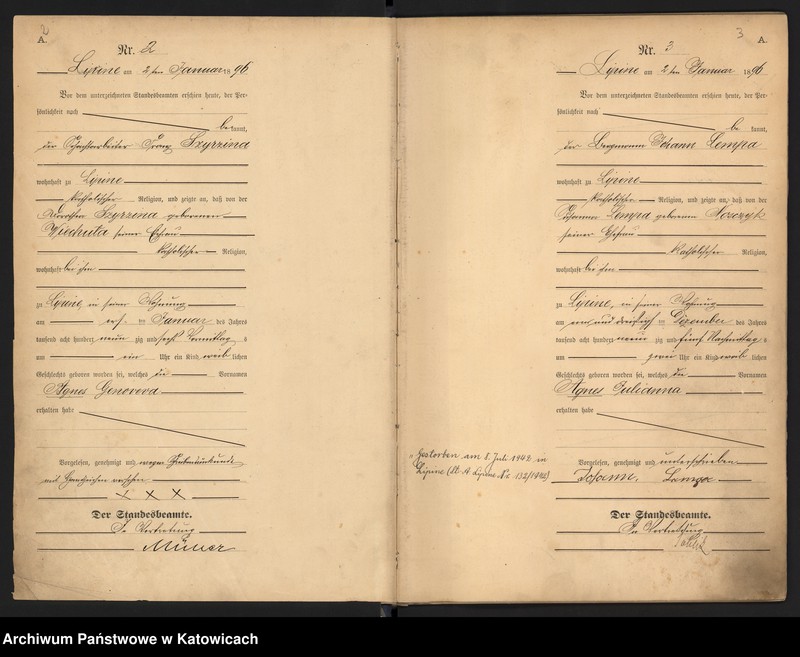 2
A.
Nr. 2
Lipine am 2ten Januar 1896
Vor dem unterzeichneten Standesbeamten erschien heute, der Per-
sönlichkeit nach
be kannt,
der Franz Szyrzina
wohnhaft zu Lipine
katholischer Religion, und zeigte an, daß von der
Dorothea Szyrzina geborenen
Wiechuta seiner Ehefrau
katholischer Religion,
wohnhaft bei ihm
zu Lipine in seiner Wohnung
am ersten Januar des Jahres
tausend acht hundert neun zig und sechs Vormittags
um ein Uhr ein Kind weib lichen
Geschlechts geboren worden sei, welches die Vornamen
Agnes Genoveva
erhalten habe
Vorgelesen, genehmigt und wegen Schreibunkunde
mit Handzeichen versehen
x x x
Der Standesbeamte.
In Vertretung
Müller
3
A.
Nr. 3
Lipine am 2ten Januar 1896
Vor dem unterzeichneten Standesbeamten erschien heute, der Per-
sönlichkeit nach
be kannt,
der Bergmann Johann Lempa
wohnhaft zu Lipine
katholischer Religion, und zeigte an, daß von der
Johanna Lempa geborenen
seiner Ehefrau
katholischer Religion,
wohnhaft bei ihm
zu Lipine, in seiner Wohnung
am ein und dreißigsten Dezember des Jahres
tausend acht hundert neun zig und fünf Nachmittags
um zwei Uhr ein Kind weib lichen
Geschlechts geboren worden sei, welches die Vornamen
Agnes Julianna
erhalten habe
Gestorben am 8. Juli 1942 in
Lipine (St. A. Lipine Nr. 132/1942)
Vorgelesen, genehmigt und unterschrieben
Johann Lempa
Der Standesbeamte.
In Vertretung
Archiwum Państwowe w Katowicach